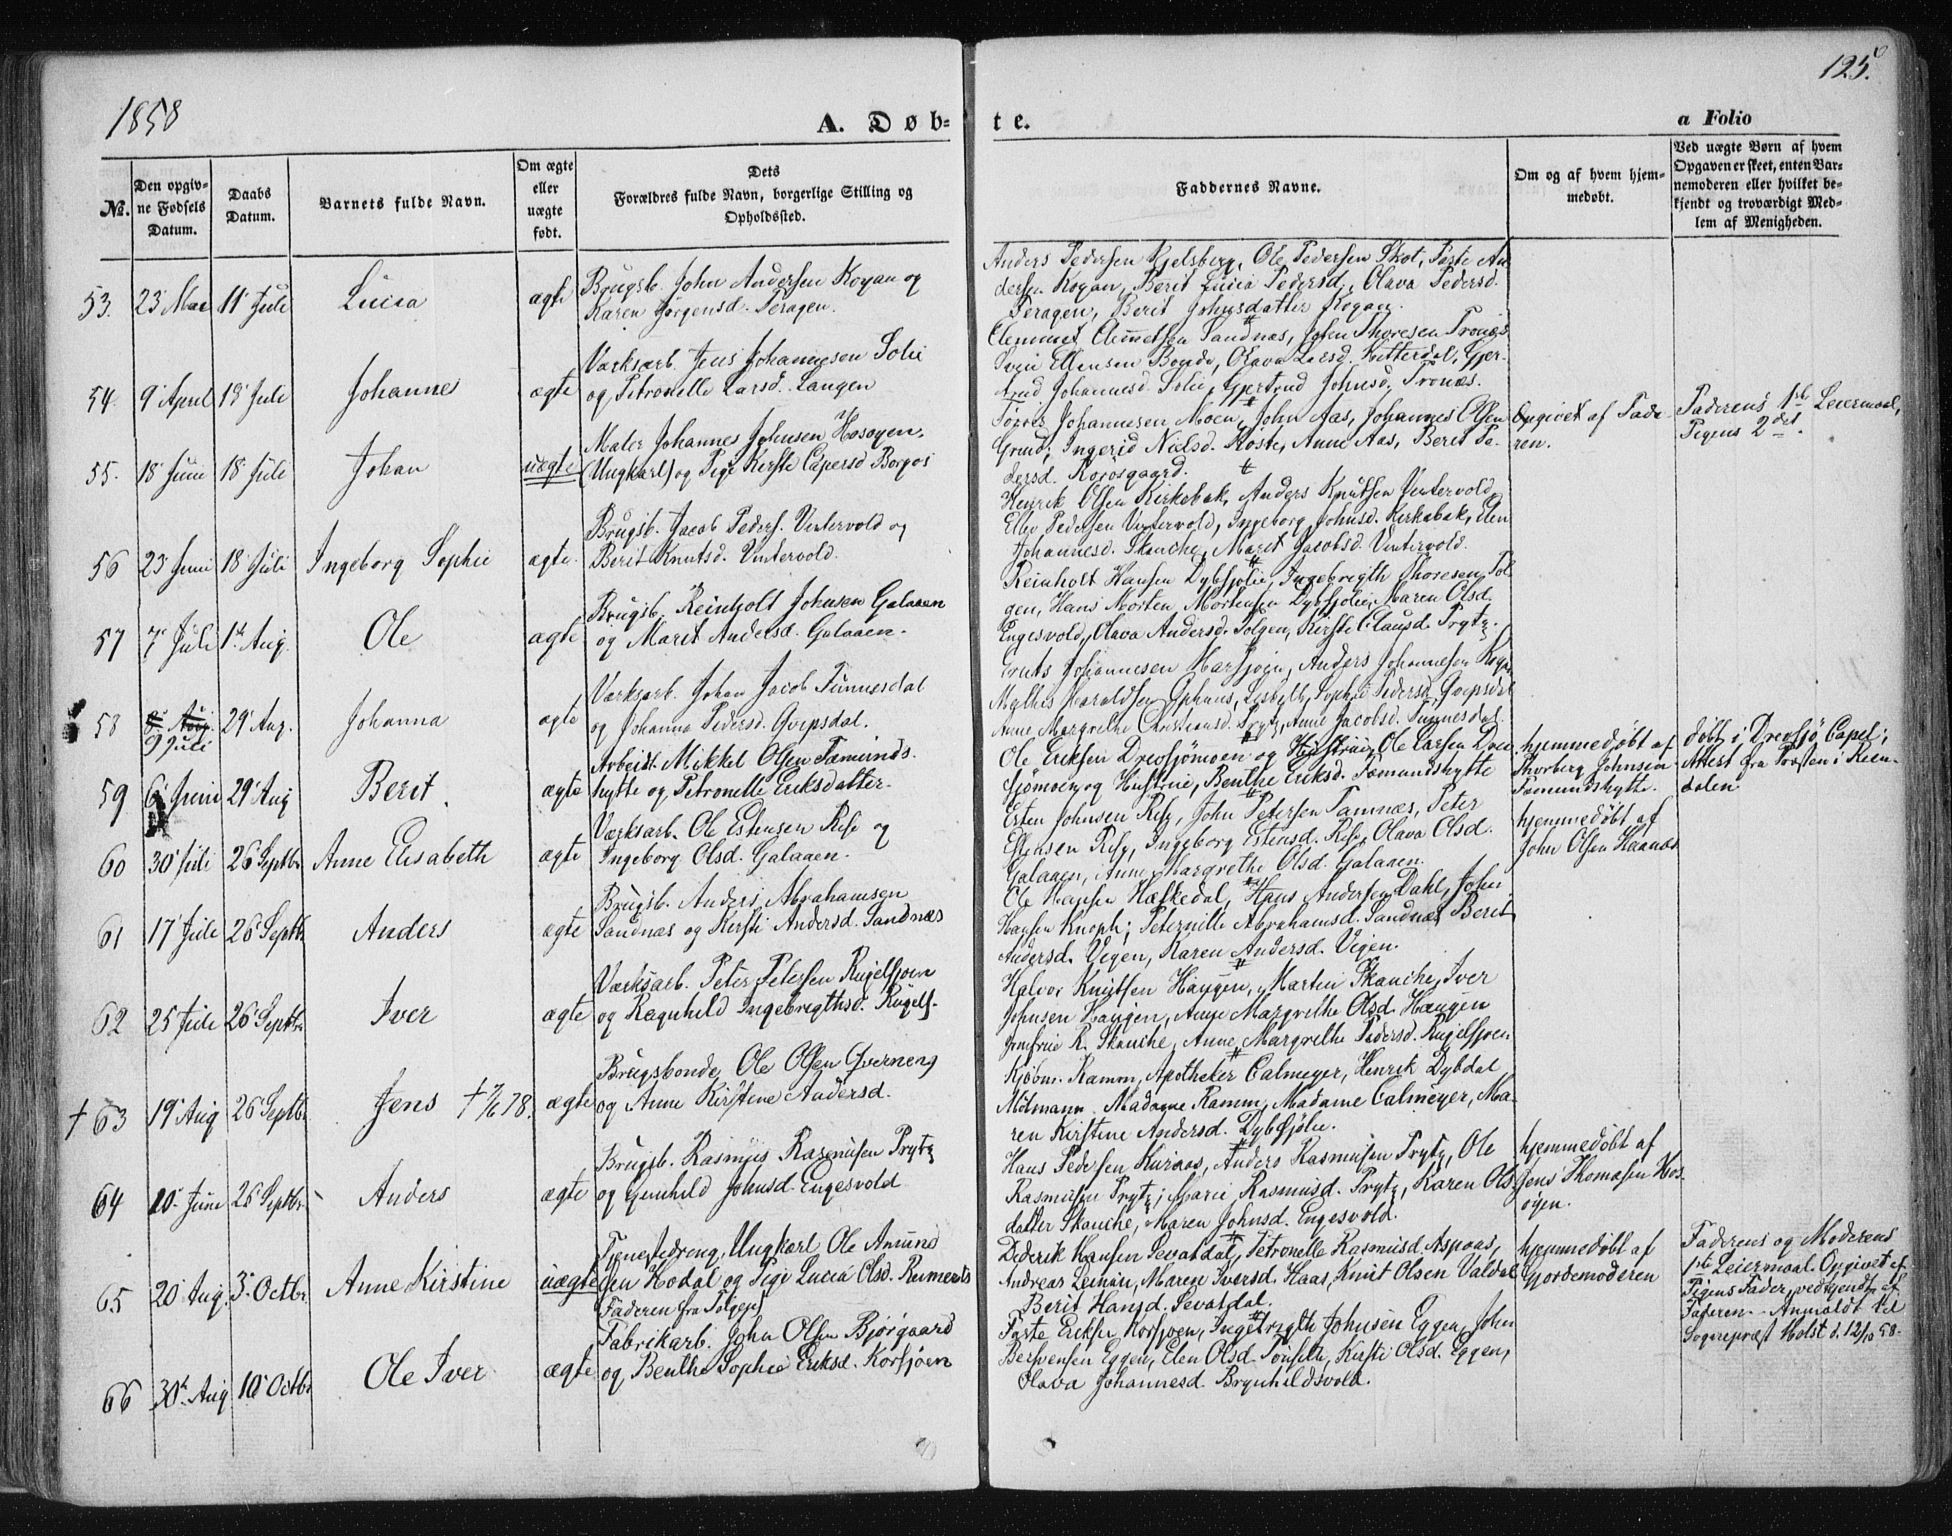 1858
A. Døb-
te.
125.
a Folio
No.
Den opgiv-
ne Fødsels
Datum.
Daabs
Datum.
Barnets fulde Navn.
Om ægte
eller
uægte
født.
Dets
Forældres fulde Navn, borgerlige Stilling og
Opholdssted.
Faddernes Navne.
Om og af hvem hjem-
medøbt.
Ved uægte Børn af hvem
Opgaven er skeet, enten Bar-
nemoderen eller hvilket be-
kjendt og troværdigt Med-
lem af Menigheden.
53. 23 Mai 11 Juli Lucia ægte
Brugsb. John Andersen Kogan og
Karen Jørgensd. Feragen.
Anders Pedersen Kjelsberg, Ole Pedersen Skot, Tøste An-
dersen Kogan, Berit Lucia Pedersd., Olava Pedersd.
Feragen, Berit Johnsdatter Kogan.
54. 9 April 18 Juli Johannes ægte
Værksarb. Jens Johannesen Solie
og Petronelle Larsd. Langen
Clemmet Clemetsen Sandnæs, John Thoresen Tronæs
Svein Ellensen Bonde, Olava Larsd. Kutterdal, Gjer-
trud Johannesd. Solie, Gjertrud Johnsd. Tronæs.
55. 18 Juni 18 Juli Johan uægte
Maler Johannes Johnsen Hosøyen,
(Ungkarl) og Pige Kersti Espersd Borgos
Tørres Johannesen Moen, John Aas, Johannes Olsen
Grund, Ingerid Nielsd. Koste, Anne Aas, Berit Pe-
dersd. Korosgaard.
Opgivet af Fade-
ren.
Faderens 1ste Leiermaal,
Pigens 2det.
56 23 Juni 18 Juli Ingeborg Sophie ægte.
Brugsb. Jacob Peders. Vintervold og
Berit Knutsd. Vintervold.
Henrik Olsen Kirkebak, Anders Knutsen Vintervold,
Ellev Pedersen Vintervold, Ingeborg Johnsd. Kirkebak, Elen
Johannesd. Skanche, Marit Jacobsd. Vintervold.
57 7 Juli 1ste Aug. Ole ægte
Brugsb. Reinholt Johnsen Galaaen
og Marit Andersd. Galaaen.
Reinholt Hansen Dybsjølie, Ingebrigth Thoresen Tol-
gen, Hans Morten Mortensen Dybsjølie, Maren Olsd.
Engesvold, Olava Andersd. Tolgen, Kirsti Clausd. Prytz.
58 9 Juli 29 Aug. Johanna ægte
Værksarb. Johan Jacob Tunnesdal
og Johanna Pedersd. Qvipsdal.
Johannesen Harsjøen, Anders Johannesen
Mathis Haraldsen Ophaus, Sophie Pedersd. Qvipsdal
Anne Margrethe Christensd. Prytz, Anne Jacobsd. Tunnesdal.
59 6 Juni 29 Aug Berit ægte
Arbeidst. Mikkel Olsen Fæmunds-
hytte og Petronelle Eriksdatter.
Ole Eriksen Drevsjømoen og Hustrue, Ole Larsen Drev-
sjømoen og Hustrue, Benthe Eriksd. Fæmundshytte
hjemmedøbt af
Thorberg Johnsen
Fæmundshytte.
døbt i Drevsjø Capel;
Attest fra Præsten i Ren-
dalen
60 30 Juli 26 Septbr. Anne Elisabeth ægte
Værksarb. Ole Estensen Ræse og
Ingeborg Olsd. Galaaen.
Esten Johnsen Ref, John Petersen Tamnæs, Peter
Estensen Ref, Ingeborg Estensd. Ref, Olava Olsd.
Galaaen, Anne Margrethe Olsd. Galaaen.
hjemmedøbt af
John Olsen Haanæs
61 17 Juli 26 Septbr. Anders ægte
Brugsb. Anders Abrahamsen
Sandnæs og Kersti Andersd. Sandnæs
Ole Hansen Hølkedal, Hans Andersen Dahl, John
Hansen Knoph; Peternille Abrahamsd. Sandnæs, Berit
Andersd. Vigen, Karen Andersd. Vigen.
62 25 Juli 26 Septbr. Iver ægte
Værksarb. Peter Petersen Rugelsjøen
og Ragnhild Ingebrigthsd. Rugels.
Halvor Knutsen Haugen, Martin Skanche, Iver
Johnsen Haugen, Anne Margrethe Olsd. Haugen
Jomfrue R. Skanche, Anne Margrethe Pedersd. Rugelsjøen.
† 63 19 Aug 26 Septbr. Jens † 7/6 78. ægte
Brugsbonde Ole Olsen Qverneng
og Anne Kirstine Andersd.
Kjøbm. Ramm, Apotheker Calmeyer, Henrik Dybdal
Motmann. Madame Ramm, Madame Calmeyer, Ma-
ren Kirstine Andersd. Dybsjølie.
64 10 Juni 26 Septbr. Anders ægte
Brugsb. Rasmus Rasmusen Prytz
og Gunhild Johnsd. Engesvold
Hans Pedersen Kuraas, Anders Rasmusen Prytz, Ole
Rasmusen Prytz; Marie Rasmusd. Prytz, Karen Ols-
datter Skanche, Maren Johnsd. Engesvold.
hjemmedøbt af
Jens Thomasen Hos-
øyen.
65 20 Aug. 3 Octbr. Anne Kirstine uægte
Tjenestedreng, Ungkarl Ole Amund-
sen Hodal og Pige Lucia Olsd. Ruments
(Faderen fra Tolgen)
Dederik Hansen Sevatdal, Petronelle Rasmusd Aspaas,
Andreas Leinan, Maren Iversd. Haas, Knut Olsen Valdal
Berit Hansd. Sevatdal.
hjemmedøbt af
Gjordemoderen
Faderens og Moderens
1ste Leiermaal. Opgivet af
Pigens Fader, vedgjendt af
Faderen. Anmeldt til
Sognepræst Holst d. 12/10 58.
66 30te Aug 10 Octbr Ole Iver ægte
Fabrikarb. John Olsen Bjørgaard
og Benthe Sophie Eriksd. Korsjøen
Toste Eriksen Korsjøen, Ingebrigth Johnsen Eggen, John
Bersvensen Eggen, Elen Olsd. Tonsette, Kirsti Olsd. Eggen,
Olava Johannesd. Brynhildsvold.